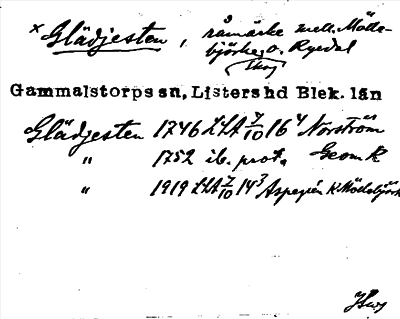 × Glädjesten, råmärke mell. Mölle-
björke o. Ryedal
Skog
Gammalstorps sn, Listers hd Blek. län
Glädjesten 1746 LSA 7/10 16⁴ Norström
" 1752 ib. prot. Geom. K
" 1919 LSA 7/10 14³ Aspegrén K Möllebjörk